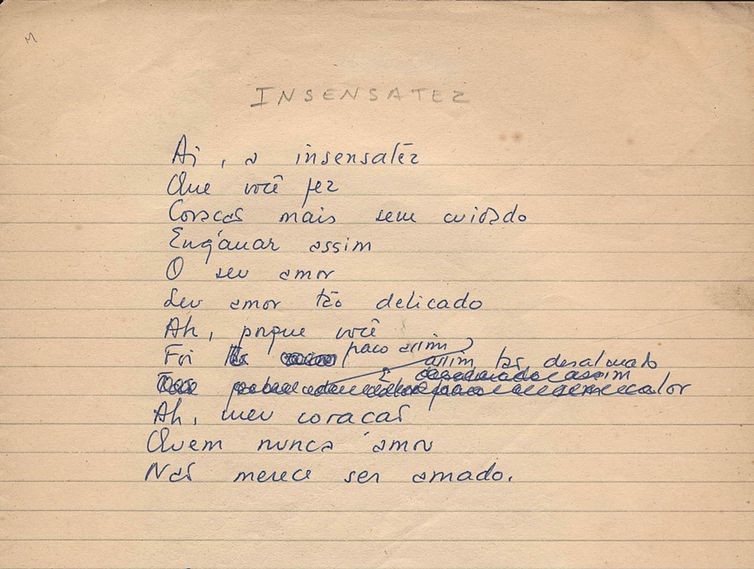 M
INSENSATEZ
Ai, a insensatêz
Que você fez
Coração mais sem cuidado
Enganar assim
O seu amor
Seu amor tão delicado
Ah, porque você
Foi fraco assim
assim tão desalmado
desalmado assim
Ah, meu coração
Quem nunca amou
Não merece ser amado.